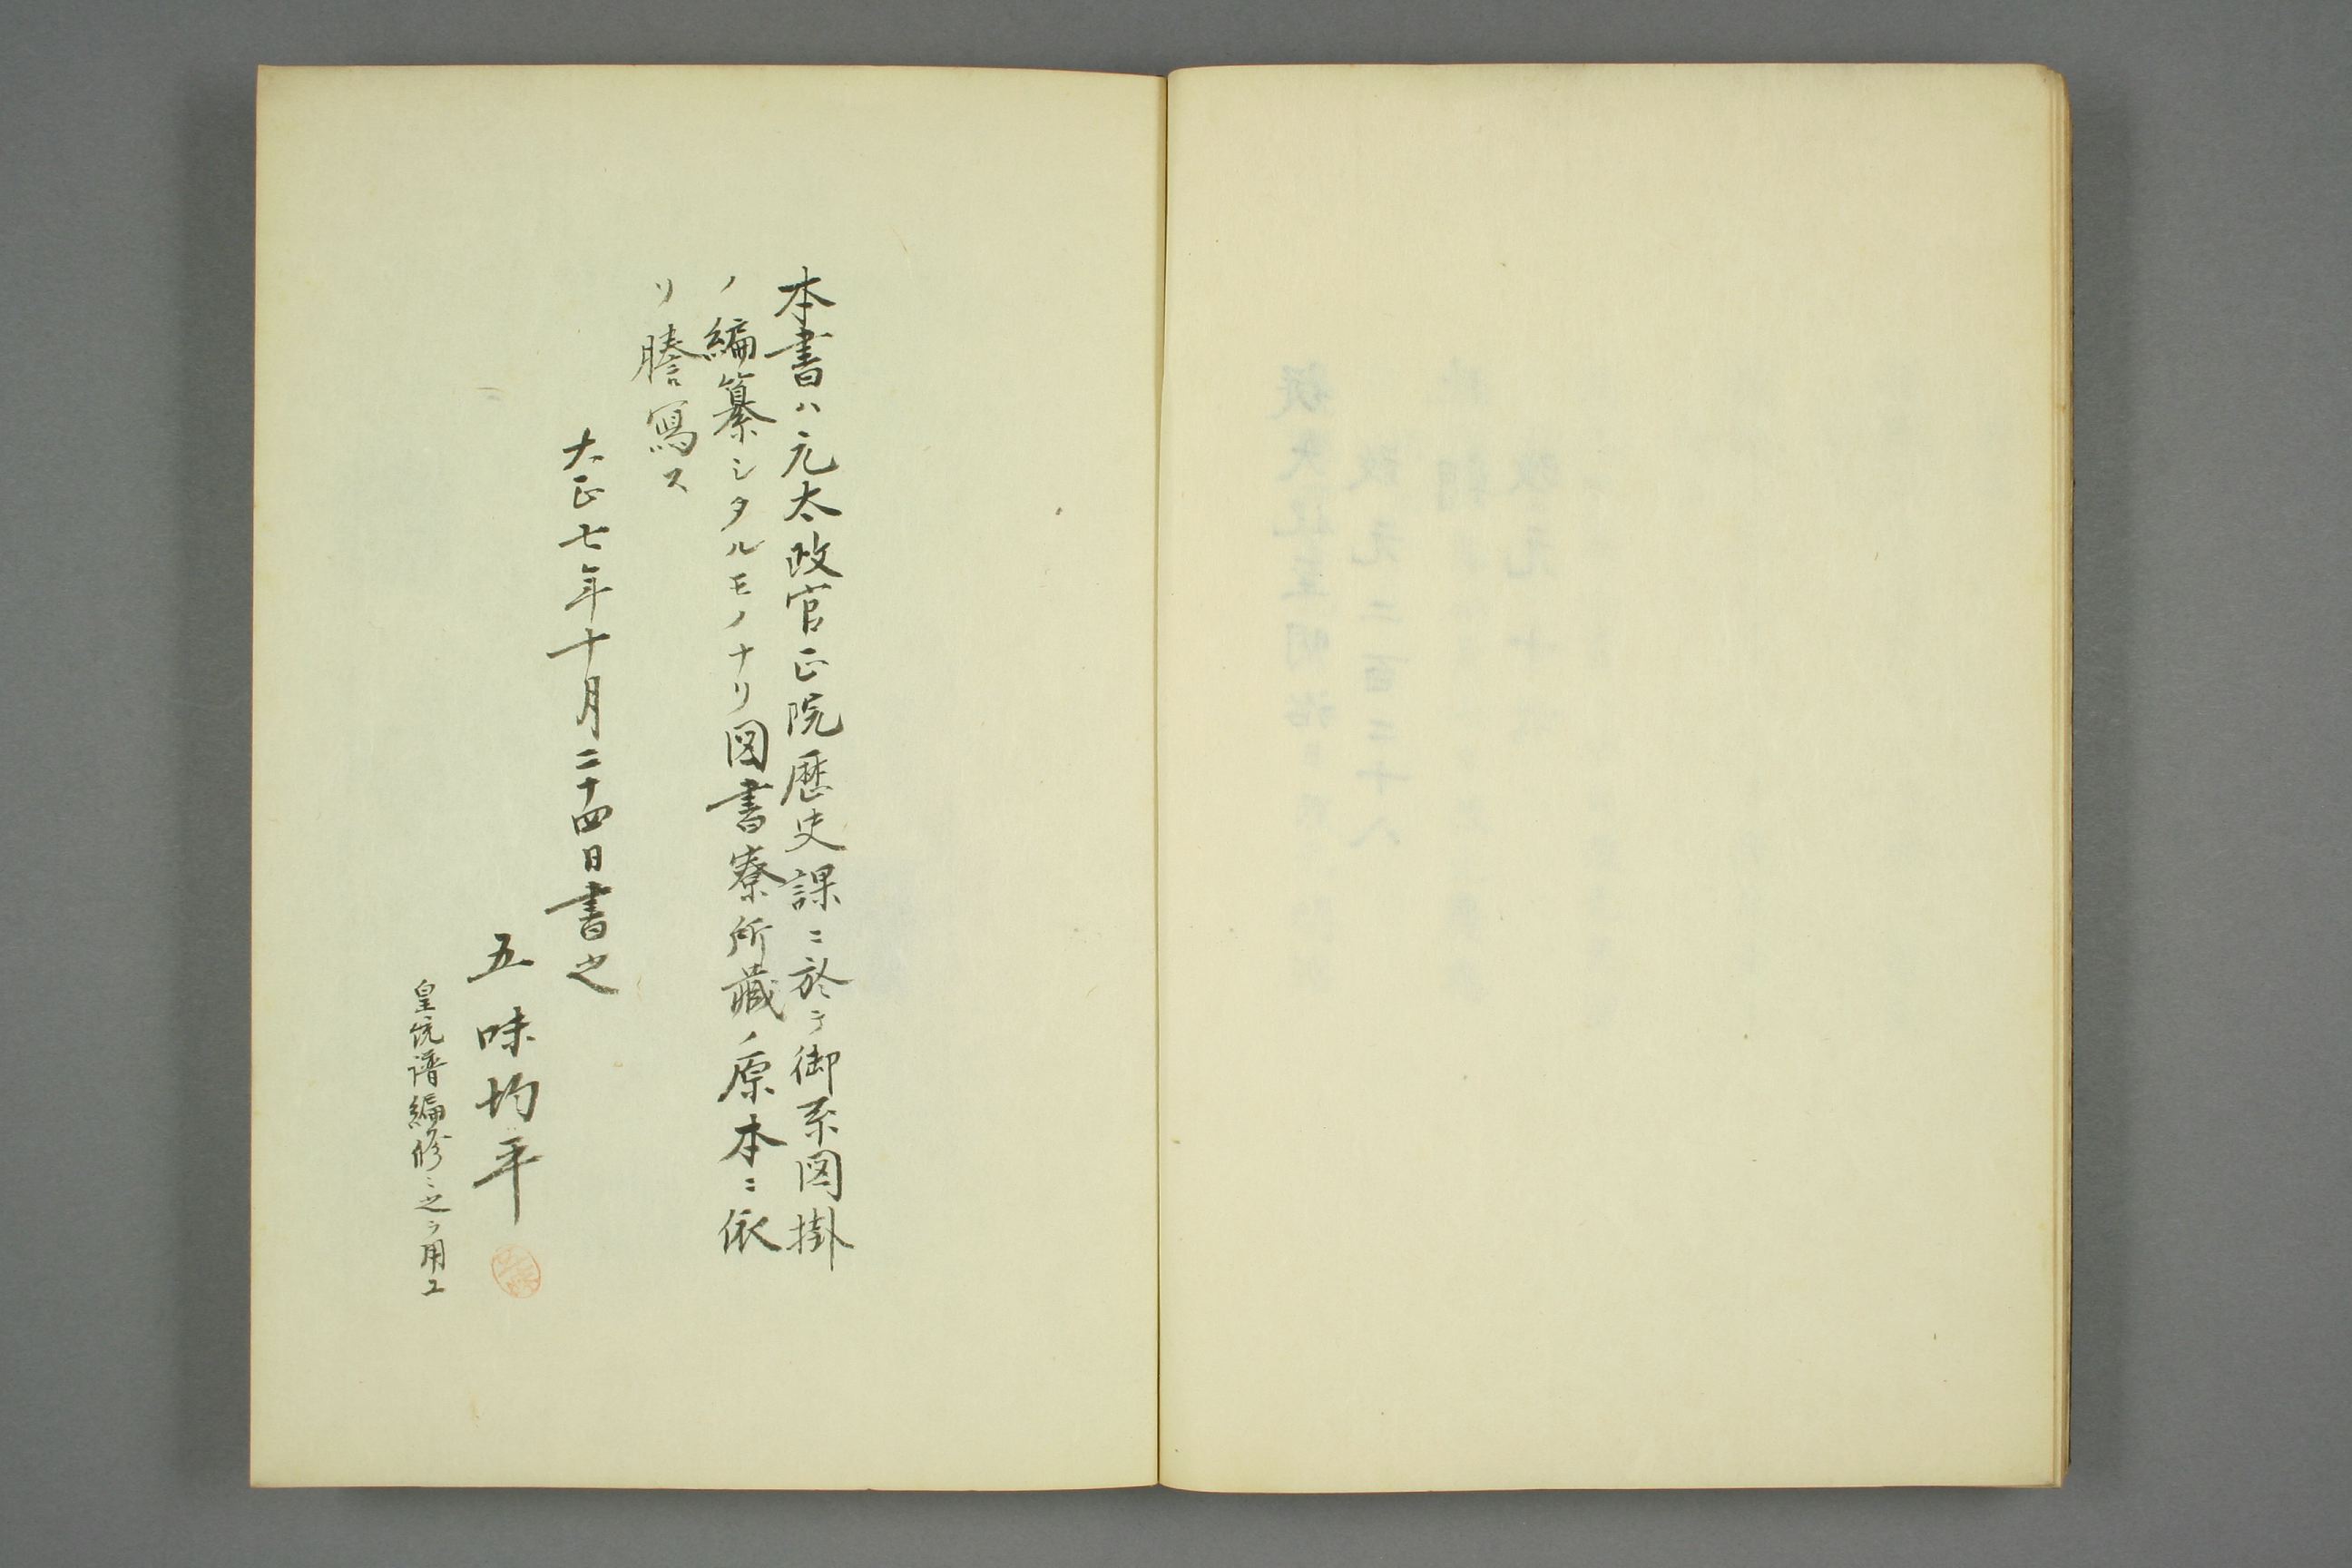 本書ハ元太政官正院歴史課ニ於テ御系図掛
ノ編纂シタルモノナリ図書寮所蔵ノ原本ニ依
リ謄寫ス
大正七年十月二十四日書之
五味均平
皇統譜編修ニ之ヲ用エ